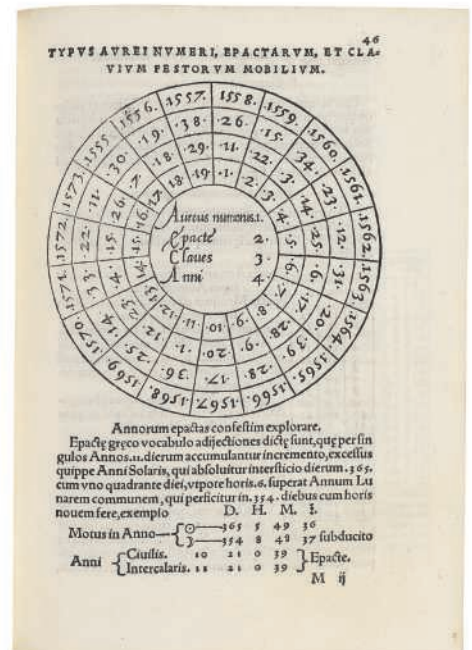 46
TYPVS AVREI NVMERI, EPACTARVM, ET CLA-
VIVM FESTORVM MOBILIVM.
1558. 1559. 1560. 1561. 1562. 1563. 1564. 1565. 1566. 1567. 1568. 1569. 1570. 1571. 1572. 1573. 1555. 1556. 1557.
26. 15. 34. 23. 12. 31. 20. 39. 28. 17. 36. 25. 14. 33. 22. 11. 30. 19. 38.
11. 22. 3. 14. 25. 6. 17. 28. 9. 20. 1. 12. 23. 4. 15. 26. 7. 18. 29.
1. 2. 3. 4. 5. 6. 7. 8. 9. 10 11 12. 13. 14. 15. 16. 17. 18. 19.
Aureus numerus. 1.
Epactę 2.
Claues 3.
Anni 4.
Annorum epactas confestim explorare.
Epactę gręco vocabulo adijectiones dictę sunt, quę per sin
gulos Annos .11. dierum accumulantur incremento, excessus
quippe Anni Solaris, qui absoluitur intersticio dierum .365.
cum vno quadrante diei, vtpote horis .6. superat Annum Lu
narem communem, qui perficitur in .354. diebus cum horis
nouem fere, exemplo D. H. M. S.
Motus in Anno ☉ 365 5 49 36
☽ 354 8 48 37 subducito
Anni Ciuilis. 10 21 0 39
Intercalaris. 11 21 0 39 Epacte.
M ij